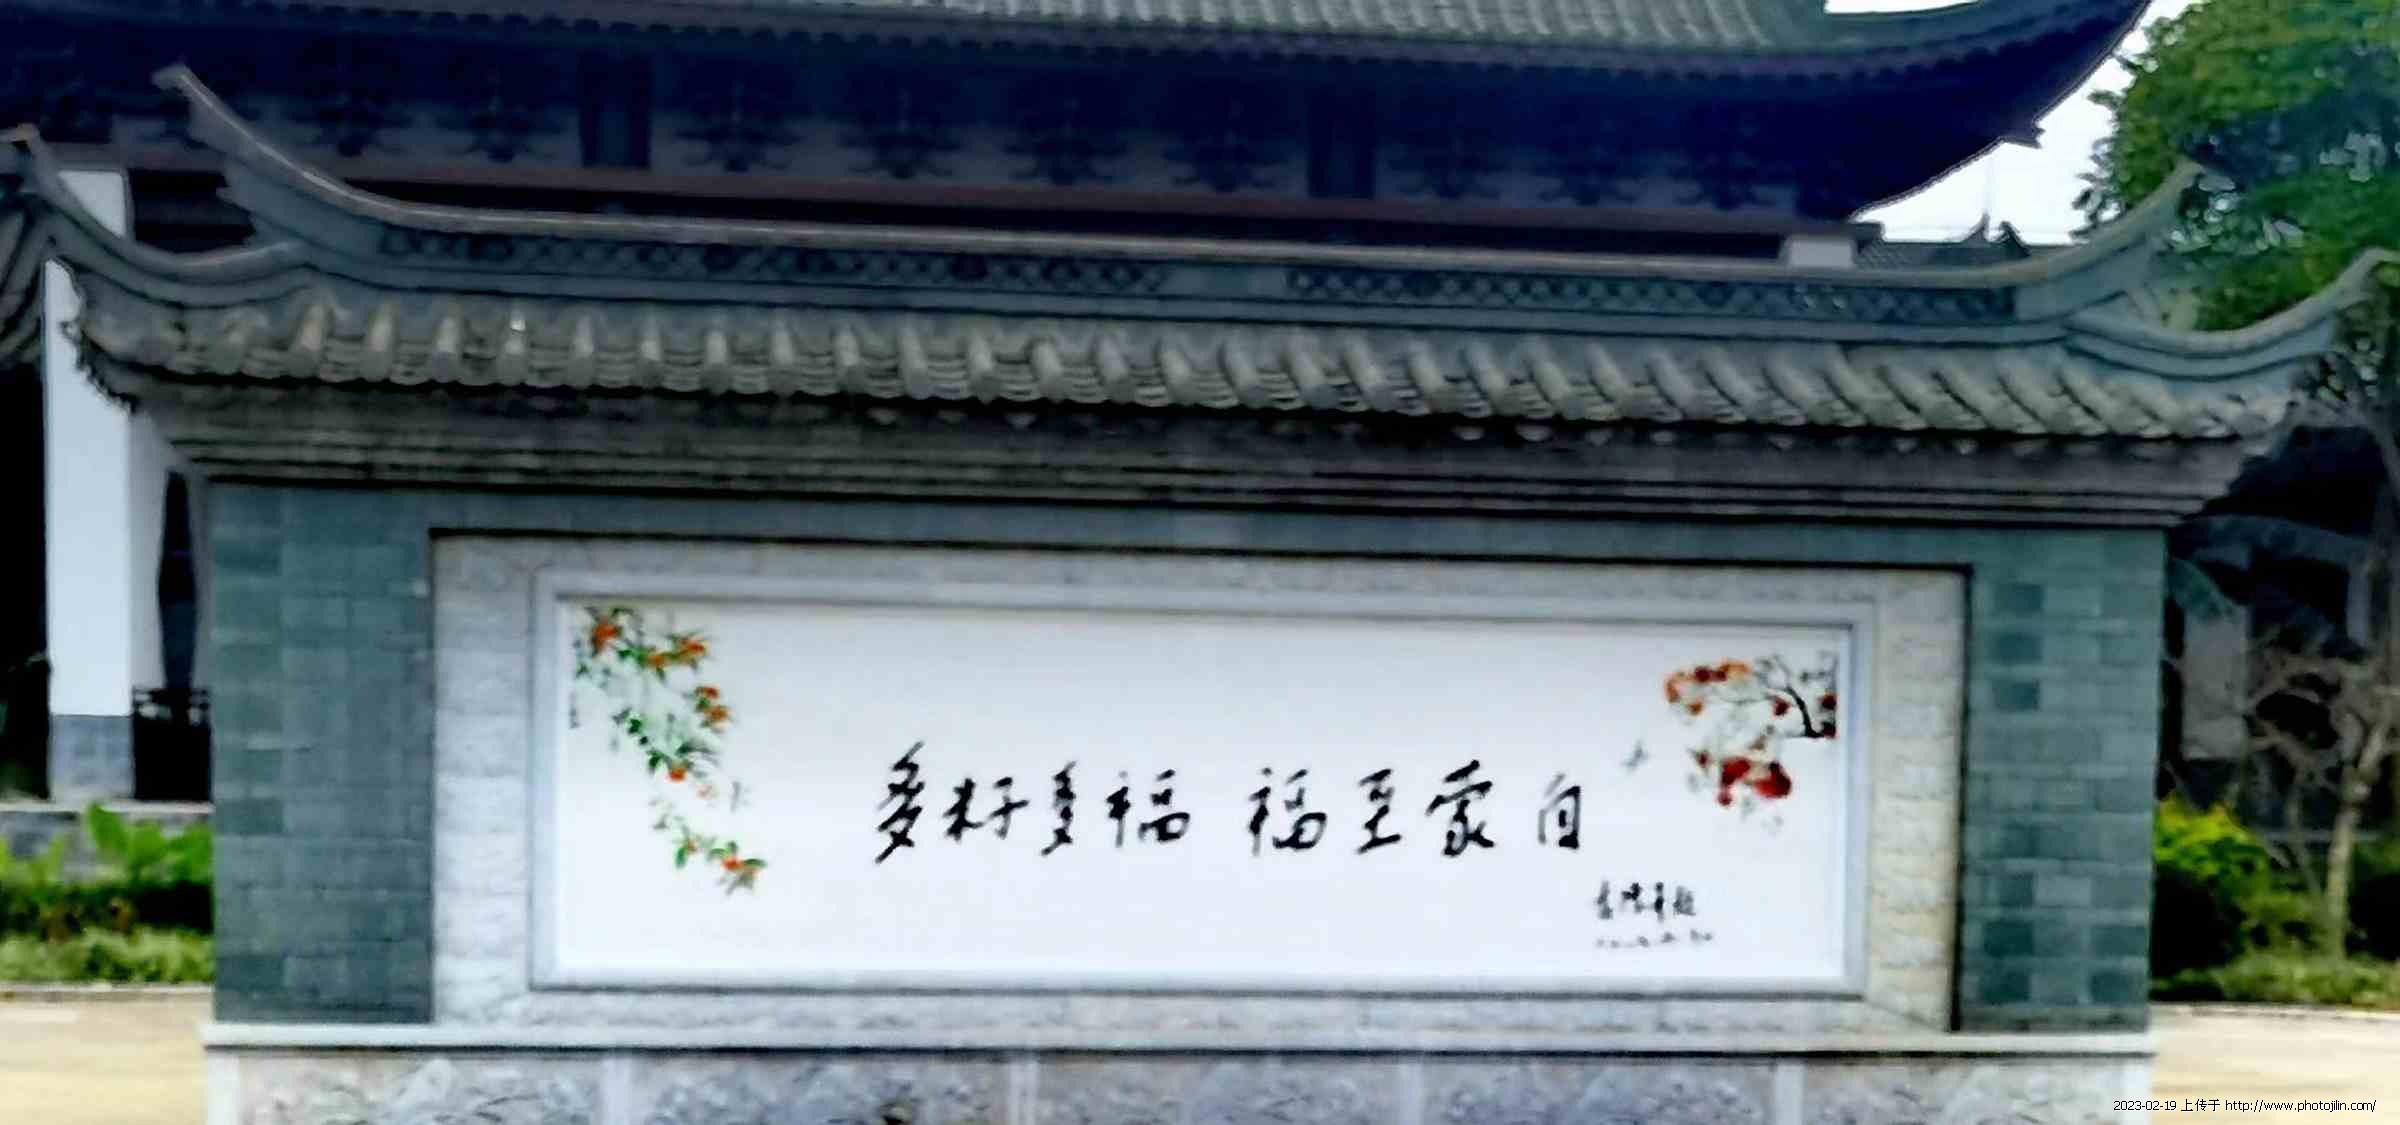 多籽多福 福至蒙自
2023-02-19 上传于 http://www.photojilin.com/